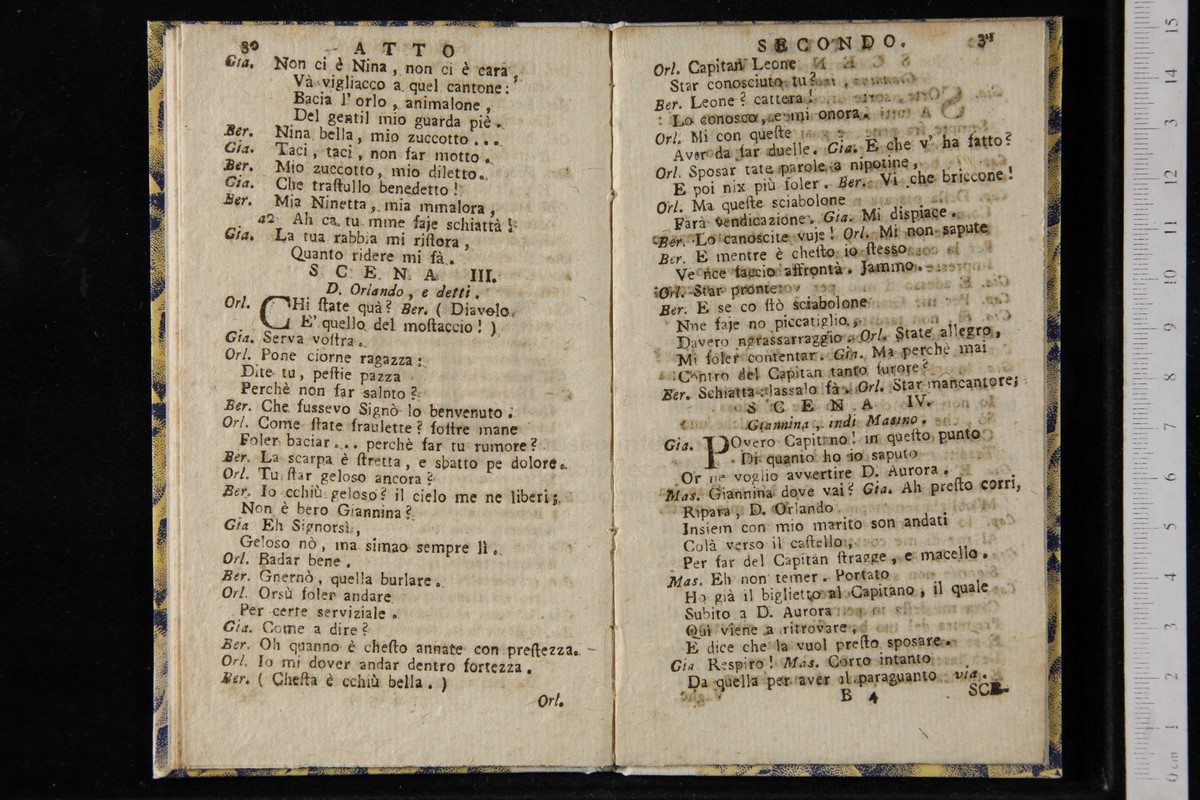 80 ATTO
Gia. Non ci è Nina, non ci è cara,
Và vigliacco a quel cantone:
Bacia l'orlo, animalone,
Del gentil mio guarda piè.
Ber. Nina bella, mio zuccotto ...
Gia. Taci, taci, non far motto.
Ber. Mio zuccotto, mio diletto.
Gia. Che traſtullo benedetto!
Ber. Mia Ninetta, mia mmalora,
a2 Ah ca tu mme faje schiattà!
Gia. La tua rabbia mi riſtora,
Quanto ridere mi fà.
SCENA III.
D. Orlando, e detti.
Orl. CHi ſtate quà? Ber. ( Diavolo
E' quello del moſtaccio! )
Gia. Serva voſtra.
Orl. Pone ciorne ragazza:
Dite tu, peſtie pazza
Perchè non far salnto?
Ber. Che fussevo Signò lo benvenuto.
Orl. Come ſtate fraulette? foſtre mane
Foler baciar... perchè far tu rumore?
Ber. La scarpa è ſtretta, e sbatto pe dolore.
Orl. Tu ſtar geloso ancora?
Ber. Io cchiù geloso? il cielo me ne liberi;
Non è bero Giannina?
Gia Eh Signorsì,
Geloso nò, ma simao sempre lì.
Orl. Badar bene.
Ber. Gnernò, quella burlare.
Orl. Orsù foler andare
Per certe serviziale.
Gia. Come a dire?
Ber. Oh quanno è cheſto annate con preſtezza.
Orl. Io mi dover andar dentro fortezza.
Ber. ( Cheſta è cchiù bella. )
Orl.
SECONDO.
Orl. Capitan Leone
Star conosciuto tu?
Ber. Leone? cattera!
Lo conosco, e mi onora.
Orl. Mi con queſte
Aver da far duelle. Gia. E che v' ha fatto?
Orl. Sposar tate parole a nipotine,
E poi nix più foler. Ber. Vi che briccone!
Orl. Ma queſte sciabolone
Farà vendicazione. Gia. Mi dispiace.
Ber. Lo canoscite vuje! Orl. Mi non sapute
Ber. E mentre è cheſto io ſtesso
Ve nce faccio affrontà. Jammo.
Orl. Star pronte.
Ber. E se co ſtò sciabolone
Nne faje no piccatiglio,
Davero ngrassarraggio. Orl. State allegro,
Mi foler contentar. Gia. Ma perchè mai
Contro del Capitan tanto furore?
Ber. Schiatta: lassalo fà. Orl. Star mancantore;
SCENA IV.
Giannina, indi Masino.
Gia. POvero Capitano! in queſto punto
Di quanto ho io saputo
Or ne voglio avvertire D. Aurora.
Mas. Giannina dove vai? Gia. Ah preſto corri,
Ripara, D. Orlando
Insiem con mio marito son andati
Colà verso il caſtello,
Per far del Capitan ſtragge, e macello.
Mas. Eh non temer. Portato
Ho già il biglietto al Capitano, il quale
Subito a D. Aurora
Qui viene a ritrovare,
E dice che la vuol preſto sposare.
Gia Respiro! Mas. Corro intanto
Da quella per aver il paraguanto via.
B 4 SCE-